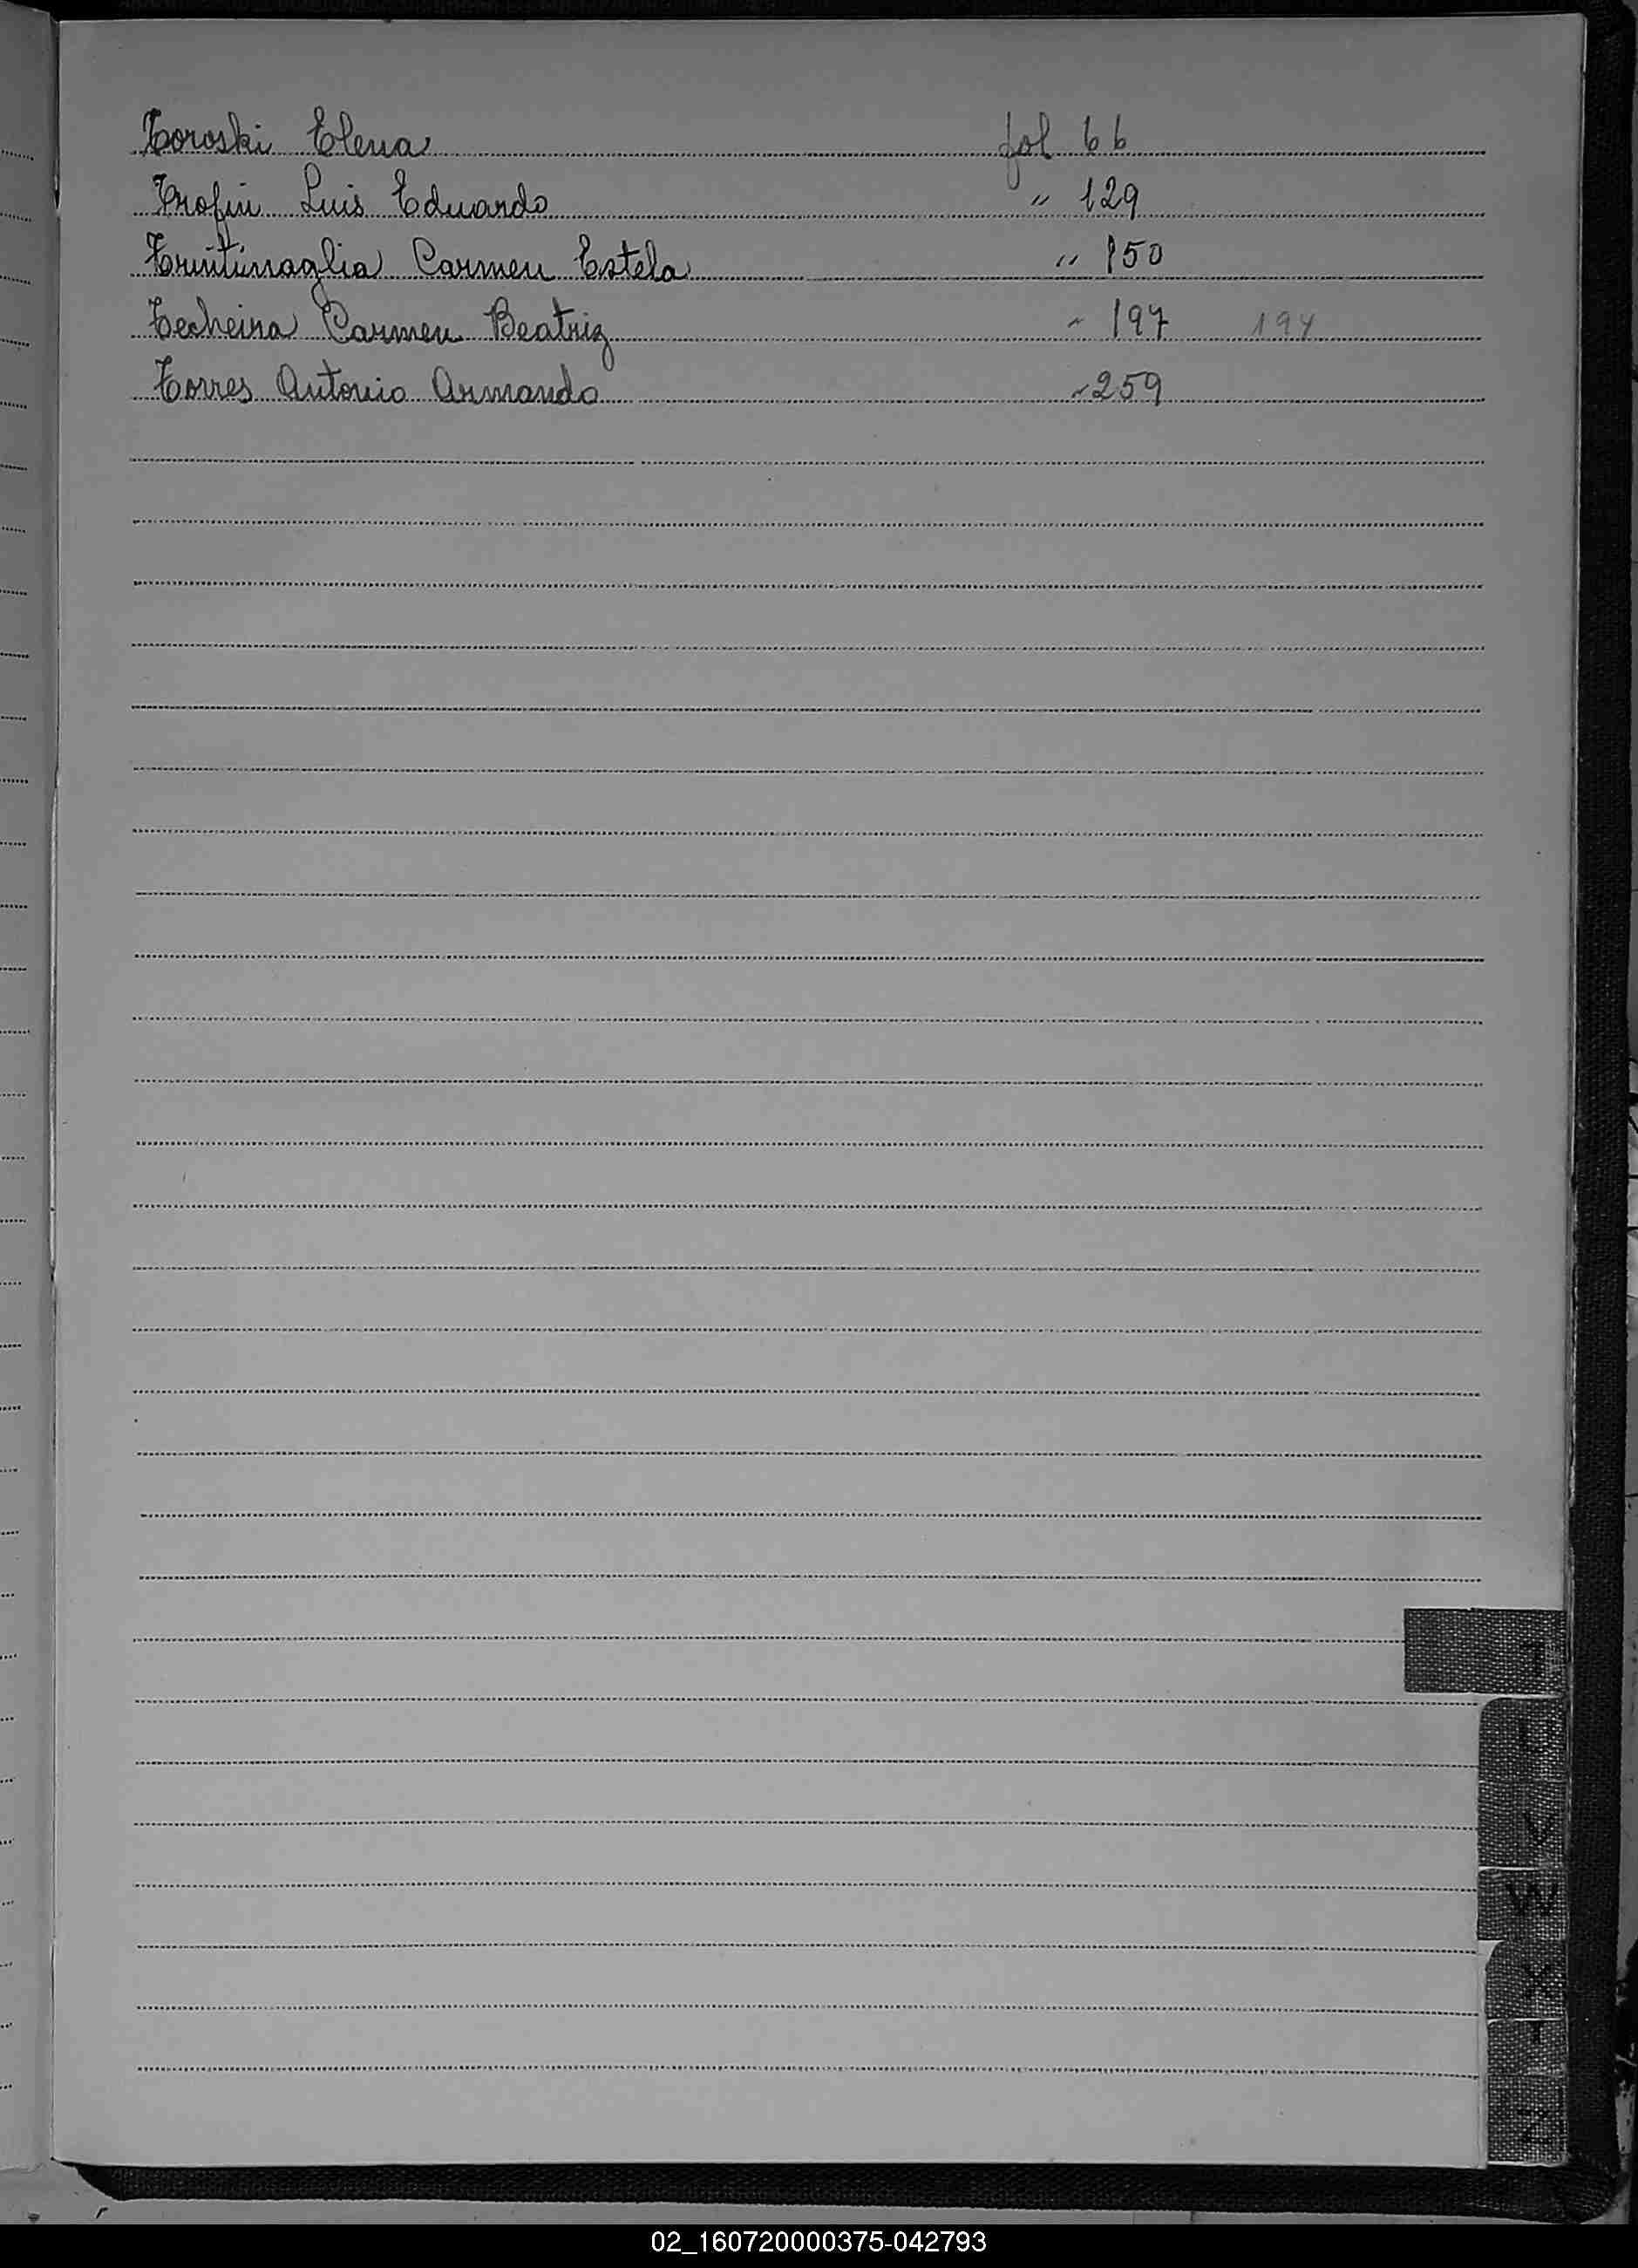 Toroski Elena fol 66
Trofin Luis Eduardo " 129
Trintinaglia Carmen Estela " 150
Techeira Carmen Beatriz " 197 194
Torres Antonio Armando " 259
T
U
V
W
X
Y
Z
02_160720000375-042793